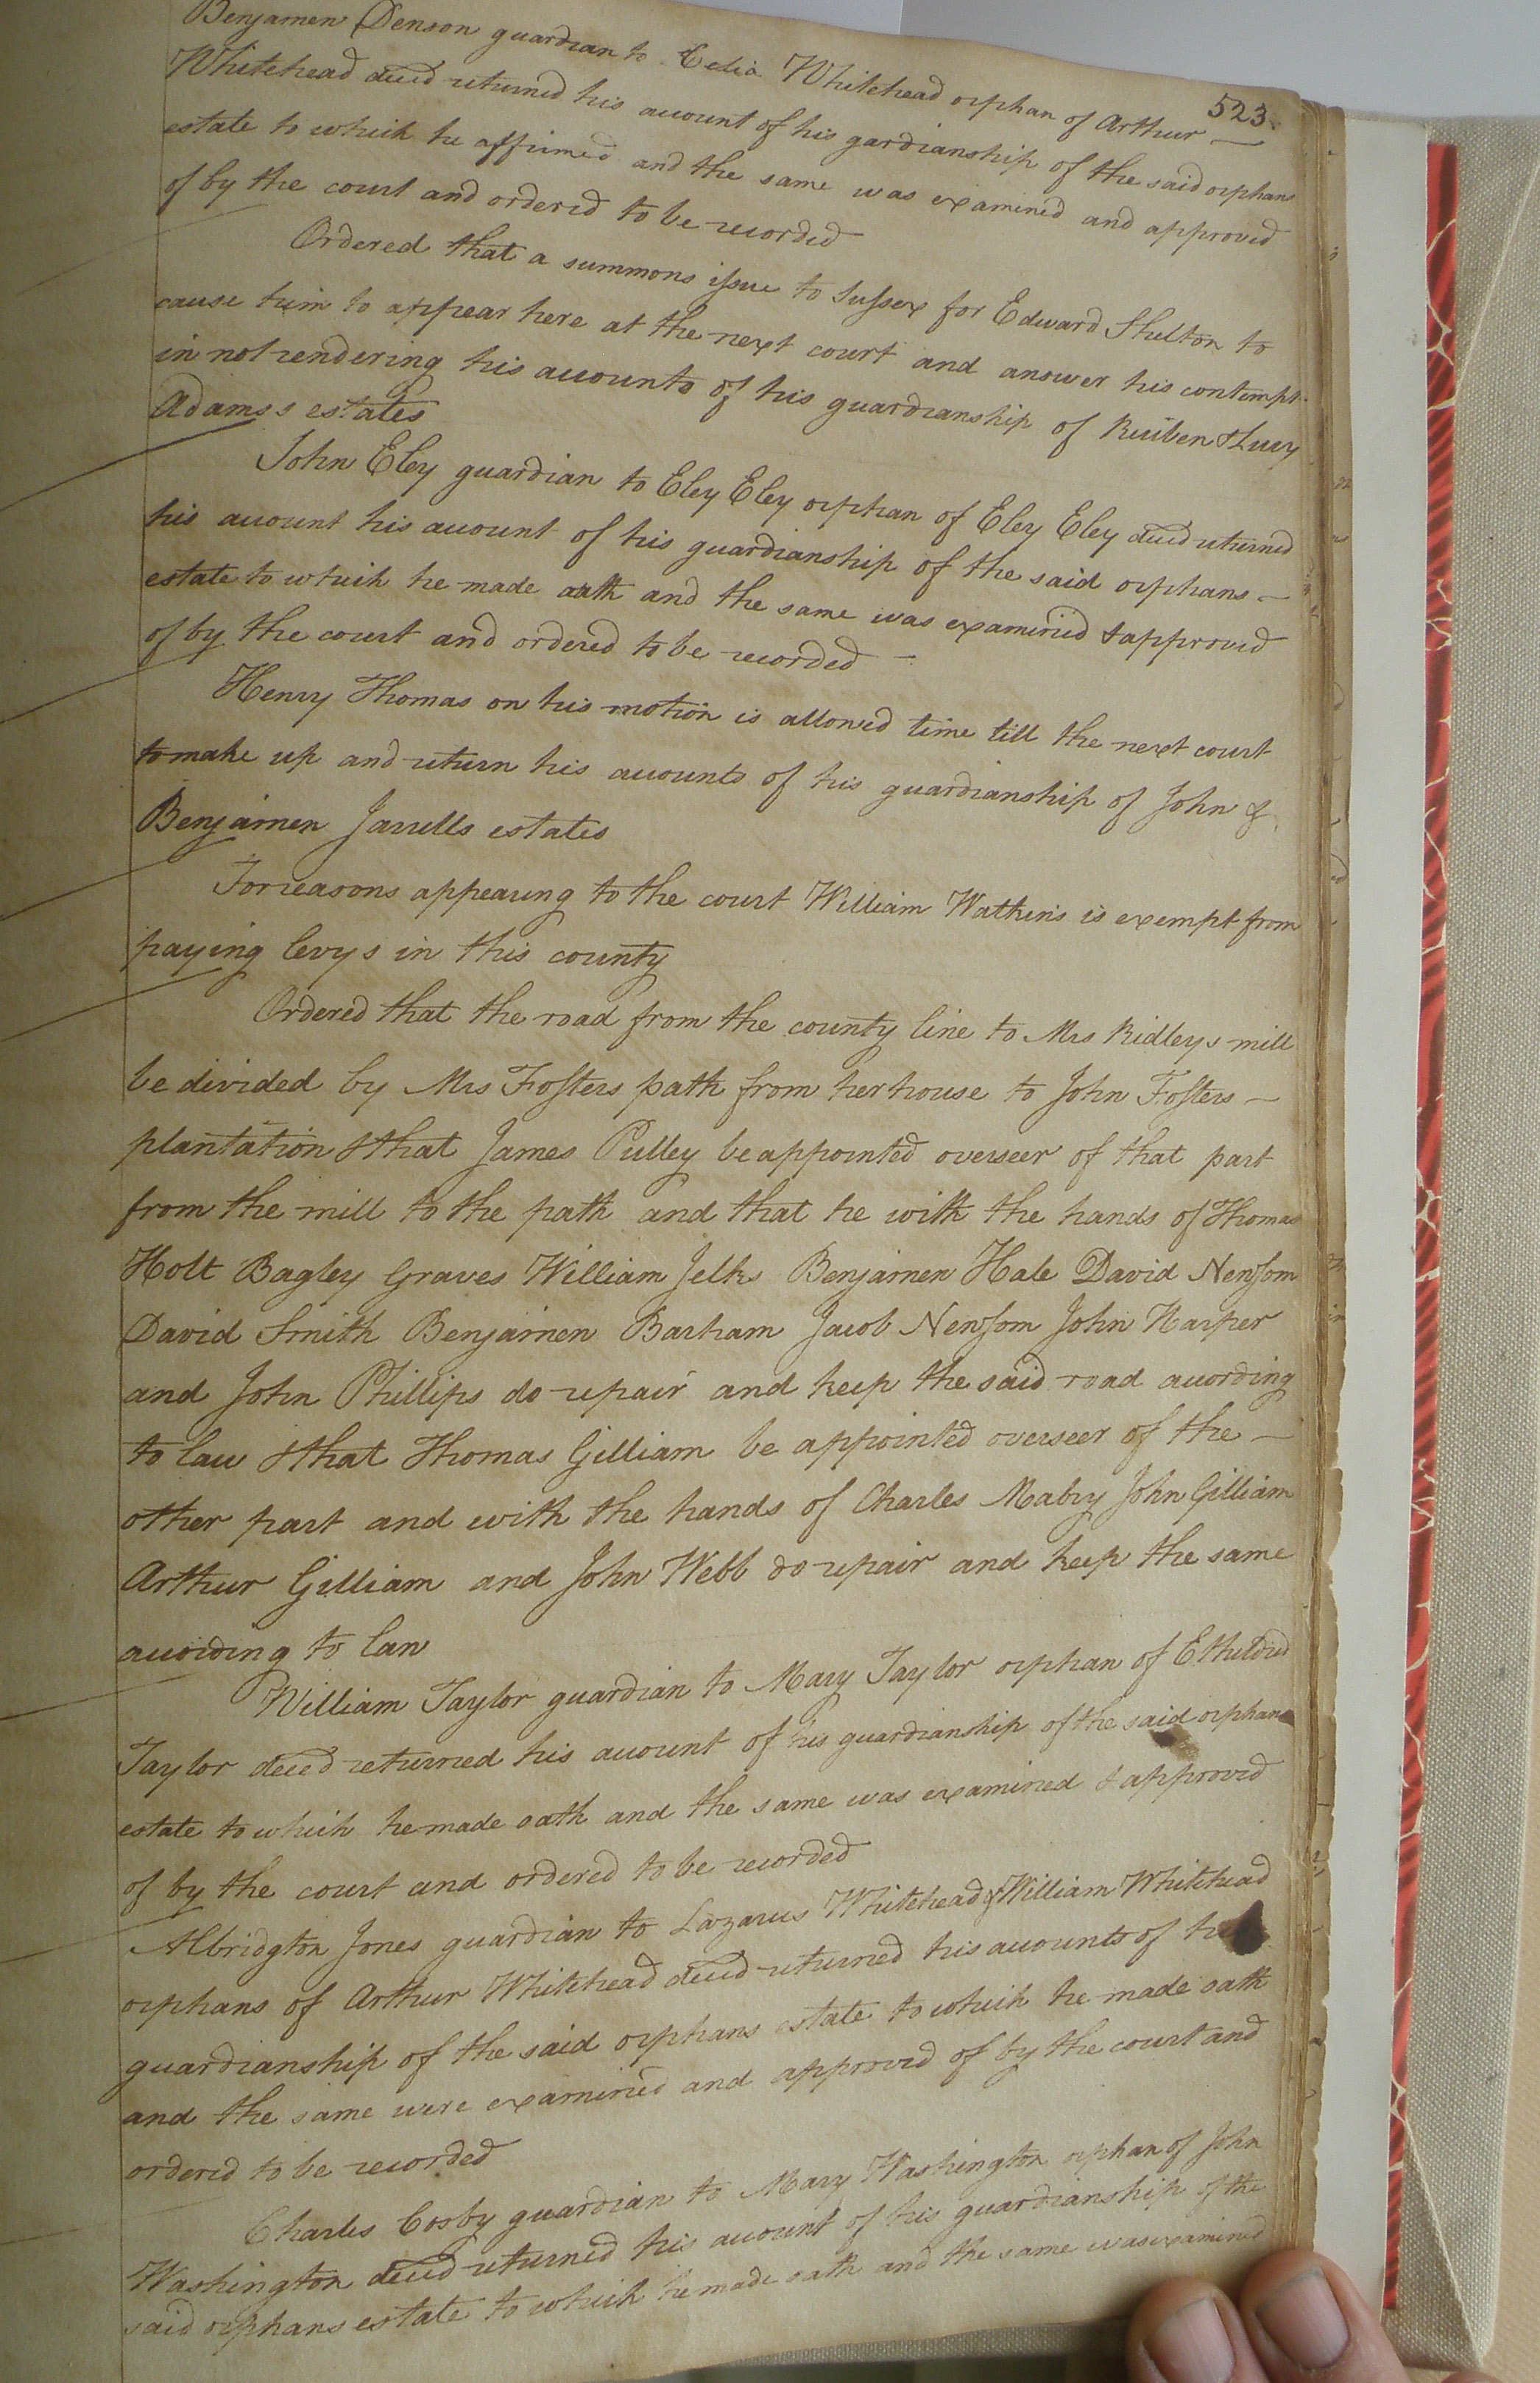 523.
Benjamen Denson guardian to Celia Whitehead orphan of Arthur —
Whitehead decd returned his account of his gardianship of the said orphans
estate to which he affirmed and the same was examined and approved
of by the court and ordered to be recorded
Ordered that a summons issue to Sussex for Edward Shelton to
cause him to appear here at the next court and answer his contempt
in not rendering his accounts of his guardianship of Reuben & Lucy
Adams s estates
John Eley guardian to Eley Eley orphan of Eley Eley decd returned
his account his account of his guardianship of the said orphans —
estate to which he made oath and the same was examined & approved
of by the court and ordered to be recorded —
Henry Thomas on his motion is allowed time till the next court
to make up and return his accounts of his guardianship of John &
Benjamen Jarrells estates
For reasons appearing to the court William Watkins is exempt from
paying levys in this county
Ordered that the road from the county line to Mrs Ridleys mill
be divided by Mrs Fosters path from her house to John Fosters —
plantation & that James Pulley be appointed overseer of that part
from the mill to the path and that he with the hands of Thomas
Holt Bagley Graves William Jelks Benjamen Hale David Newsom
David Smith Benjamen Barham Jacob Newsom John Harper
and John Phillips do repair and keep the said road according
to law & that Thomas Gilliam be appointed overseer of the —
other part and with the hands of Charles Mabry John Gilliam
Arthur Gilliam and John Webb do repair and keep the same
according to law
William Taylor guardian to Mary Taylor orphan of Etheldred
Taylor decd returned his account of his guardianship of the said orphans
estate to which he made oath and the same was examined & approved
of by the court and ordered to be recorded
Albridgton Jones guardian to Lazarus Whitehead & William Whitehead
orphans of Arthur Whitehead decd returned his accounts of his
guardianship of the said orphans estate to which he made oath
and the same were examined and approved of by the court and
ordered to be recorded
Charles Cosby guardian to Mary Washington orphan of John
Washington decd returned his account of his guardianship of the
said orphans estate to which he made oath and the same was examined